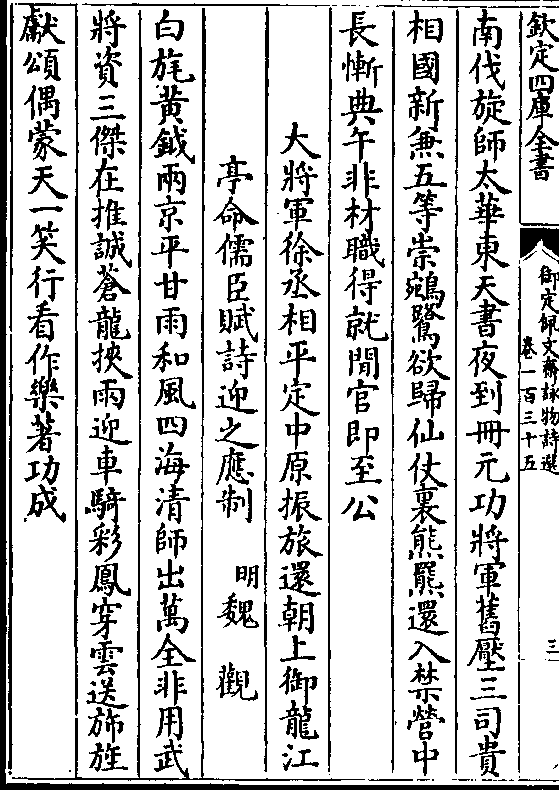 欽定四庫全書
御定佩文齋詠物詩選
卷一百三十五
三
南伐旋師太華東天書夜到冊元功將軍舊壓三司貴
相國新兼五等崇鵷鷺欲歸仙仗裏熊羆還入禁營中
長慚典午非材職得就閒官即至公
大將軍徐丞相平定中原振旅還朝上御龍江
亭命儒臣賦詩迎之應制　明魏　觀
白旄黃鉞兩京平甘雨和風四海清師出萬全非用武
將資三傑在推誠蒼龍挾雨迎車騎彩鳳穿雲送斾旌
獻頌偶蒙天一笑行看作樂著功成